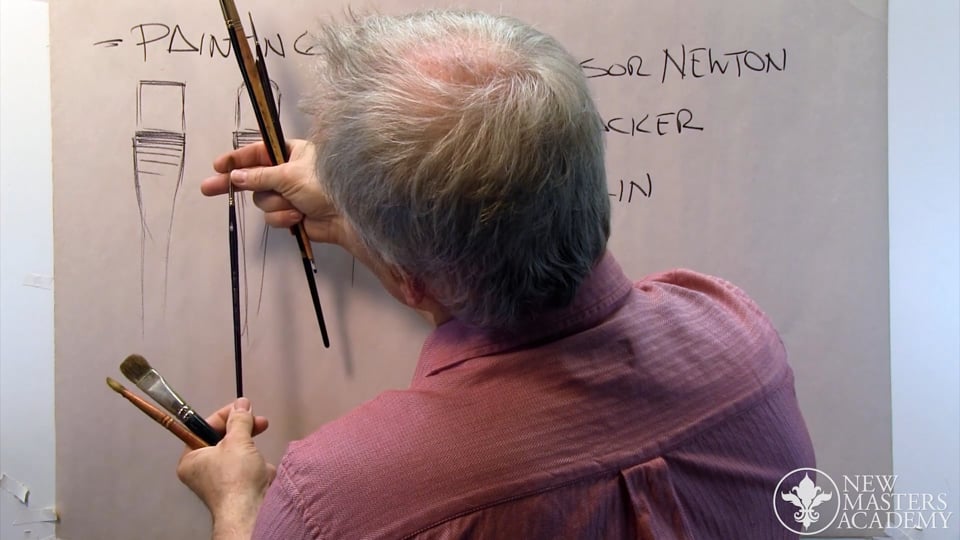 - PAINTING
SOR NEWTON
CKER
IN
NEW
MASTERS
ACADEMY